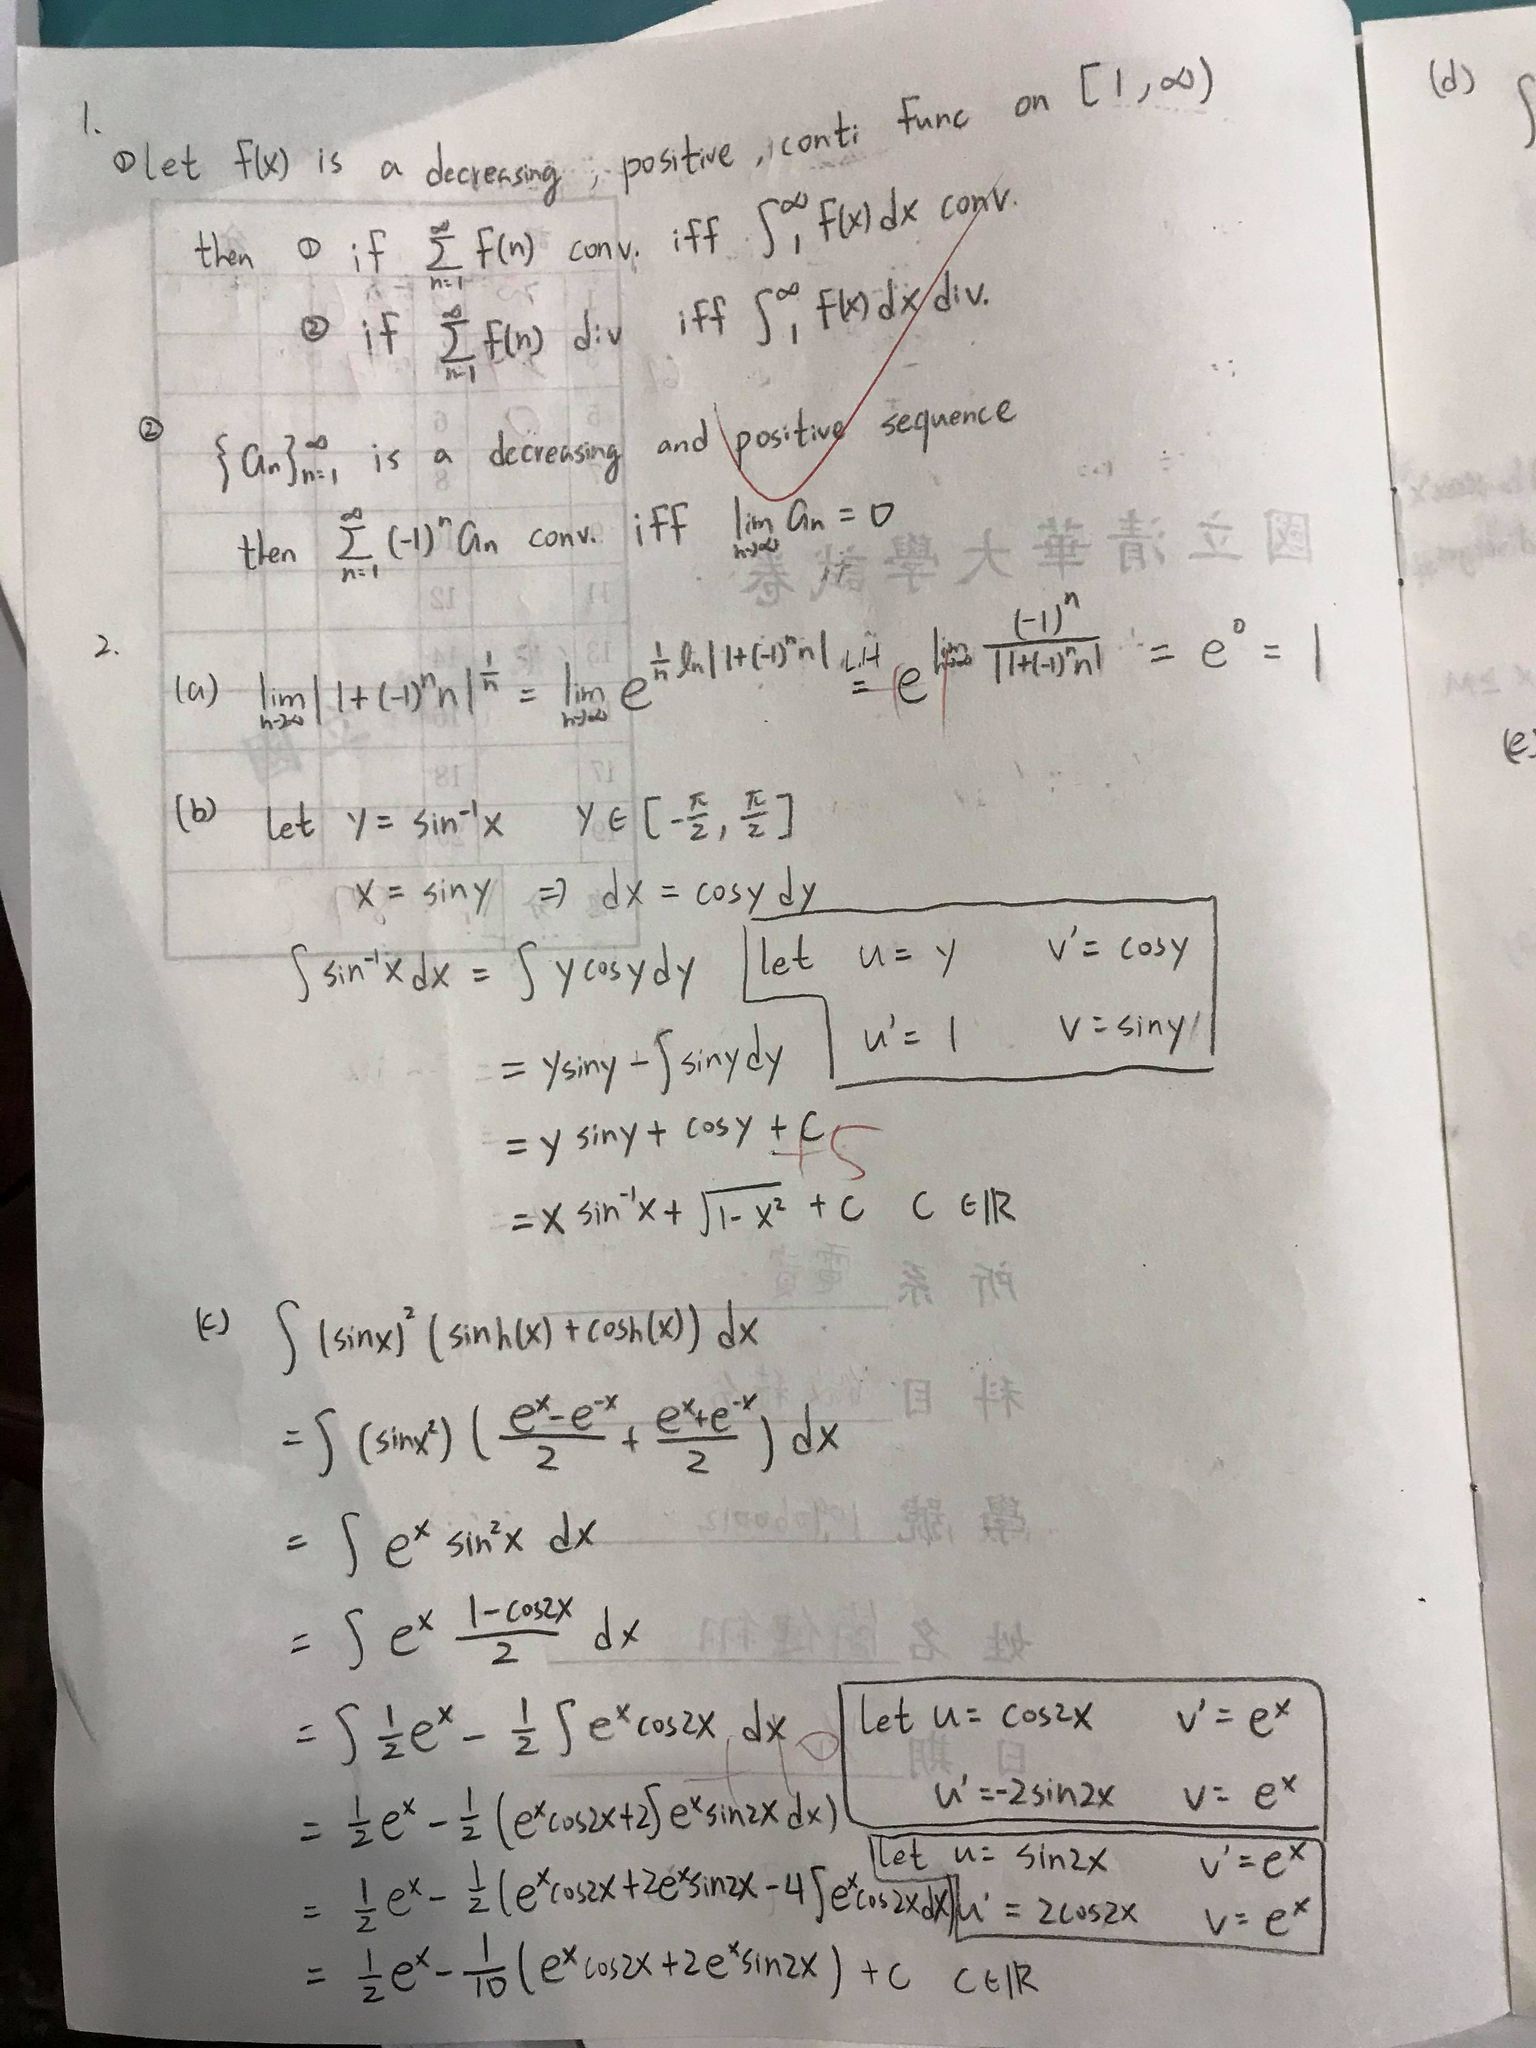 1.
① let f(x) is a decreasing, positive, conti func on [1, ∞)
then ① if ∑_{n=1}^{∞} f(n) conv. iff ∫_1^∞ f(x) dx conv.
② if ∑_{n=1}^{∞} f(n) div iff ∫_1^∞ f(x) dx div.
② {a_n}_{n=1}^{∞} is a decreasing and positive sequence
then ∑_{n=1}^{∞} (-1)^n a_n conv. iff lim_{n→∞} a_n = 0
國立清華大學試卷
2.
(a) lim_{n→∞} |1+(-1)^n n|^{1/n} = lim_{n→∞} e^{1/n ln|1+(-1)^n n|} L'H = e^{lim_{n→∞} (-1)^n/|1+(-1)^n n|} = e^0 = 1
(b) Let y = sin⁻¹x y ∈ [-π/2, π/2]
x = siny ⇒ dx = cosy dy
∫ sin⁻¹x dx = ∫ y cosy dy let u = y v' = cosy
u' = 1 v = siny
= y siny - ∫ siny dy
= y siny + cosy + C
+5
= x sin⁻¹x + √(1-x²) + C C ∈ ℝ
所系
(c) ∫ (sinx)² (sinh(x) + cosh(x)) dx
科目
= ∫ (sinx²) ( (e^x - e^{-x})/2 + (e^x + e^{-x})/2 ) dx
學號
= ∫ e^x sin²x dx
= ∫ e^x (1-cos2x)/2 dx
姓名
= ∫ ½ e^x - ½ ∫ e^x cos2x dx let u = cos2x v' = e^x
日期
u' = -2sin2x v = e^x
= ½ e^x - ½ (e^x cos2x + 2∫ e^x sin2x dx)
let u = sin2x v' = e^x
= ½ e^x - ½ (e^x cos2x + 2e^x sin2x - 4∫ e^x cos2x dx) u' = 2cos2x v = e^x
= ½ e^x - 1/10 (e^x cos2x + 2e^x sin2x) + C C ∈ ℝ
(d) ∫
(e)